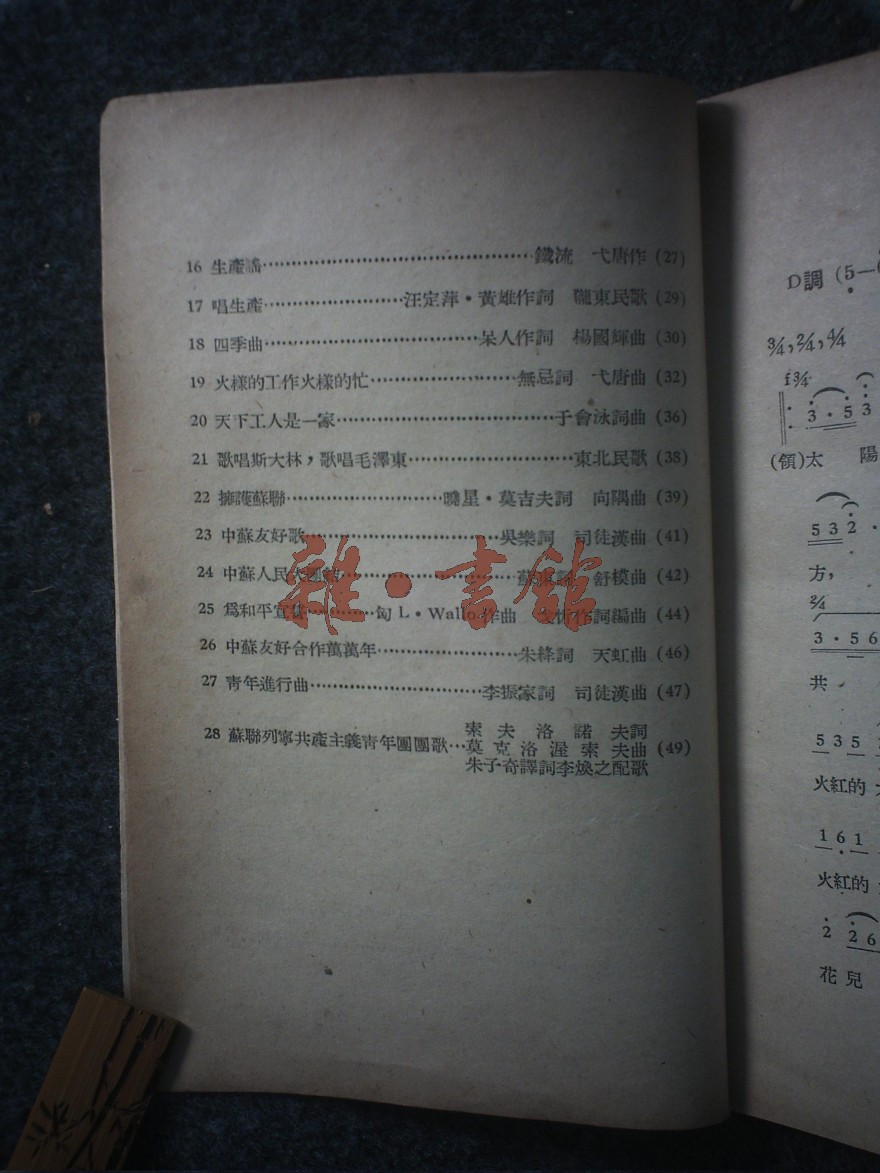 16 生產謠……鐵流 弋唐作 (27)
17 唱生產……汪定萍·黃雄作詞 隴東民歌 (29)
18 四季曲……呆人作詞 楊國輝曲 (30)
19 火樣的工作火樣的忙……無忌詞 弋唐曲 (32)
20 天下工人是一家……于會泳詞曲 (36)
21 歌唱斯大林，歌唱毛澤東……東北民歌 (38)
22 擁護蘇聯……曉星·莫吉夫詞 向隅曲 (39)
23 中蘇友好歌……吳樂詞 司徒漢曲 (41)
24 中蘇人民大團結……舒模曲 (42)
25 爲和平宣誓……匈L·Wallo作曲 作詞編曲 (44)
26 中蘇友好合作萬萬年……朱絳詞 天虹曲 (46)
27 青年進行曲……李振家詞 司徒漢曲 (47)
索夫洛諾夫詞
28 蘇聯列寧共產主義青年團團歌…莫克洛渥索夫曲 (49)
朱子奇譯詞李煥之配歌
雜·書館
D調 (5—
3/4, 2/4, 4/4
f 3/4
3·5 3
(領)太 陽
5 3 2·
方，
2/4
3·5 6
共
5 3 5
火紅的
1 6 1
火紅的
2 2 6
花兒